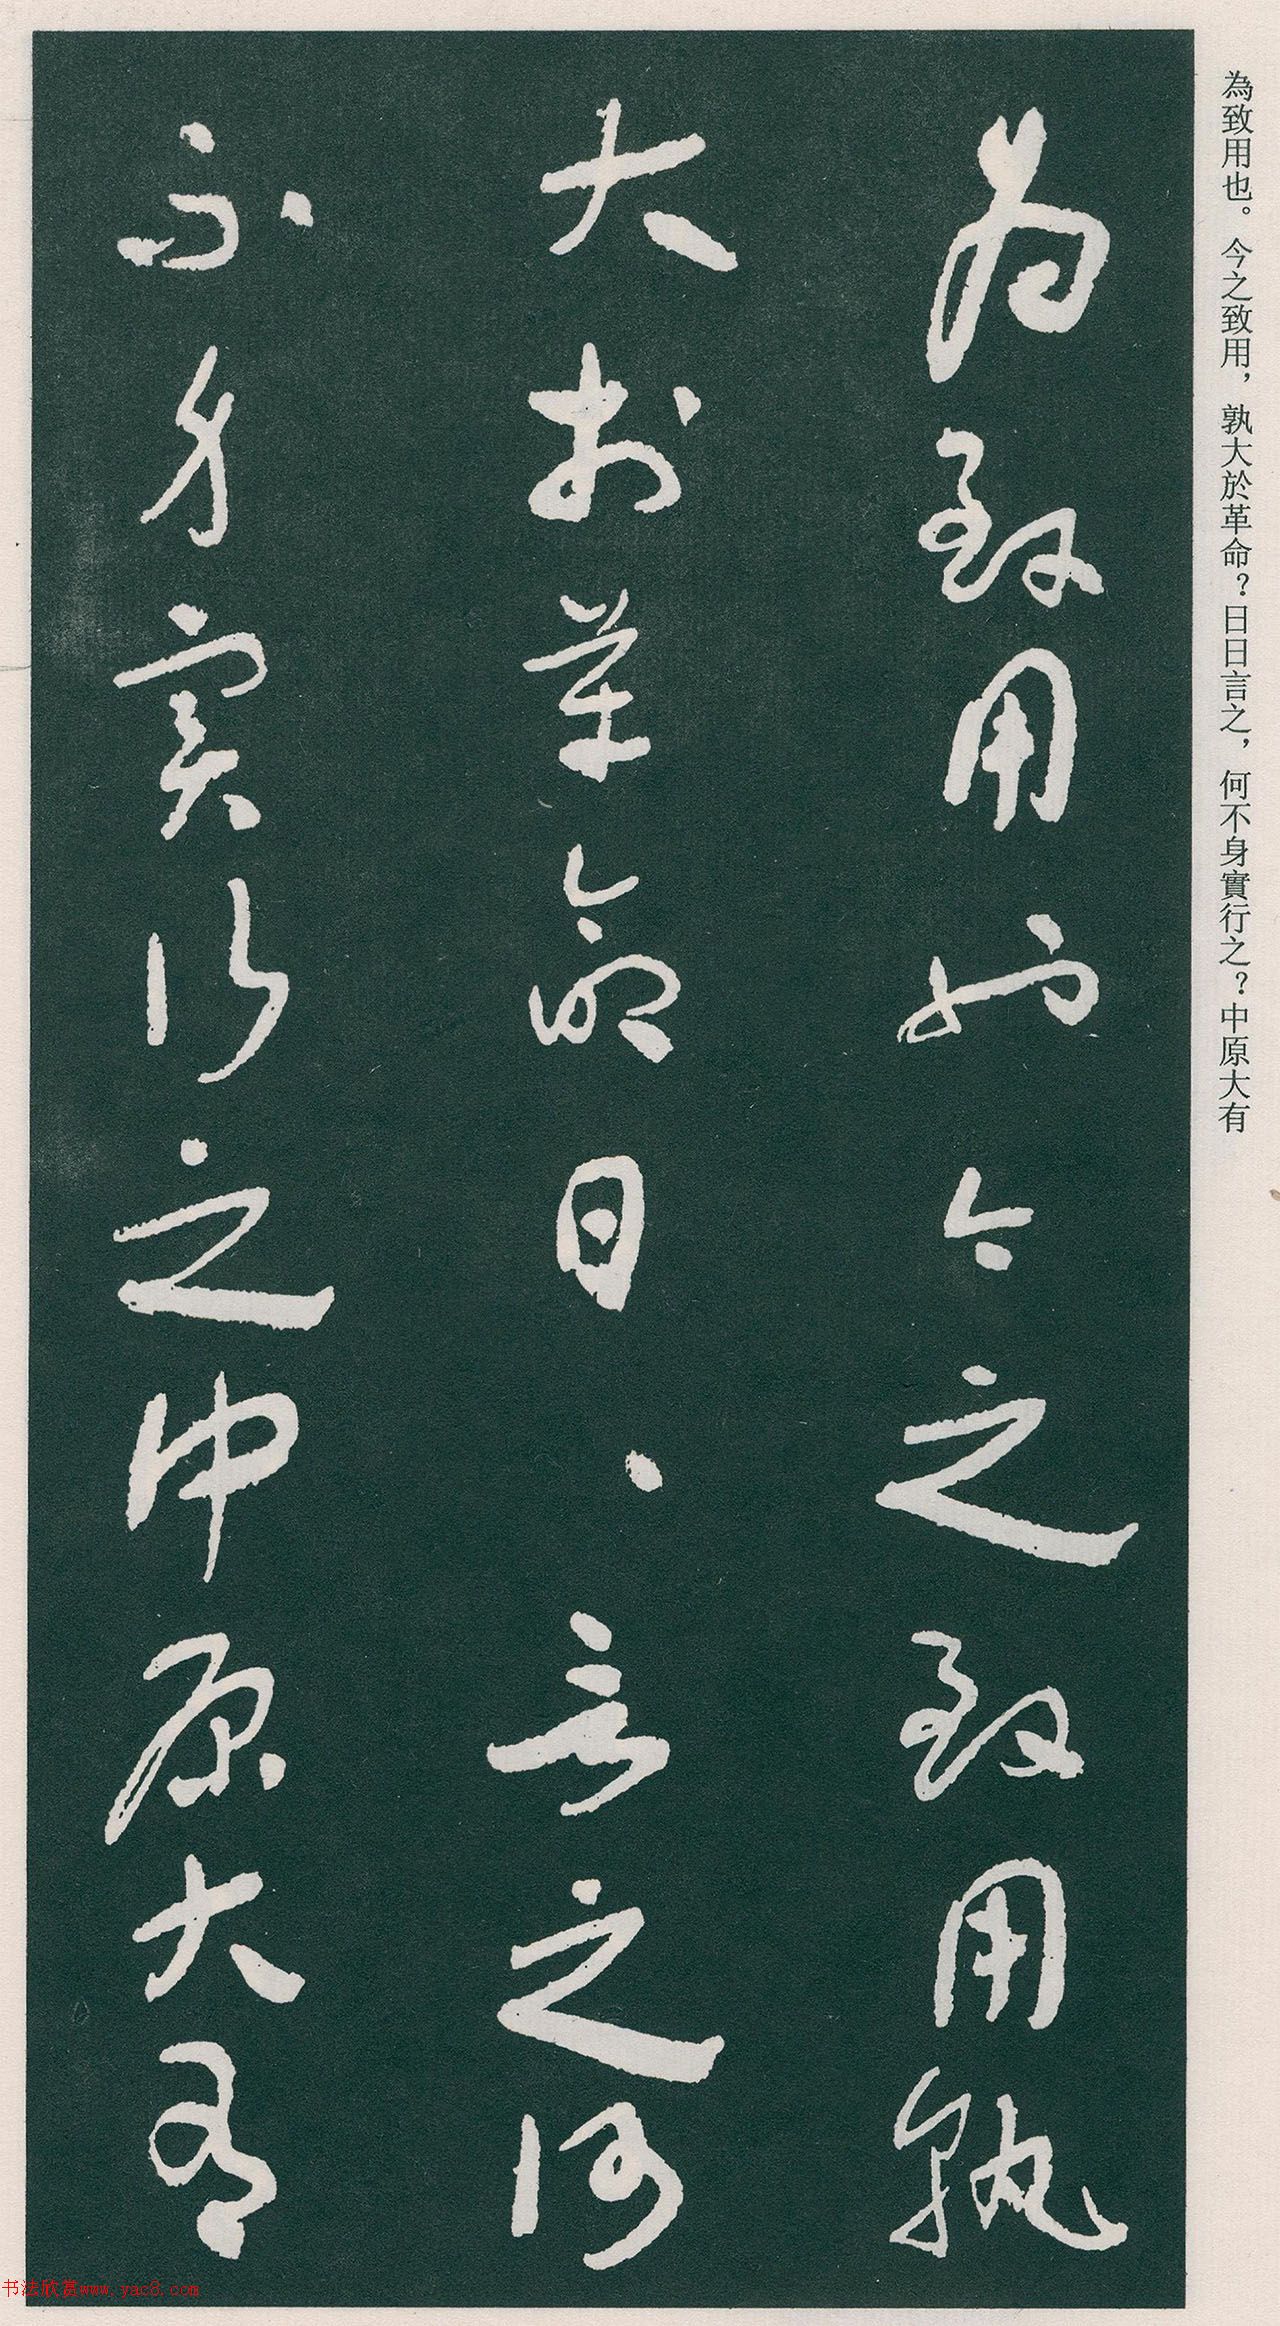 為致用也。今之致用，孰大於革命？日日言之，何不身實行之？中原大有
為致用也今之致用孰
大於革命日、言之何
不身實行之中原大有
书法欣赏www.yac8.com